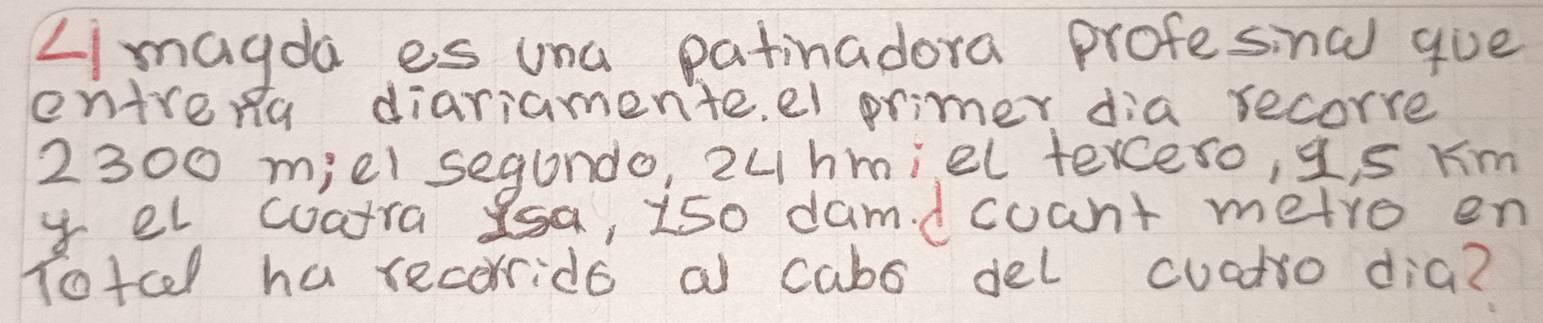 4 magda es una patinadora profesinal que
entrena diariamente. el primer dia recorre
2300 m; el segundo, 24 hm; el tercero, 1,5 Km
y el cuatra, 150 dam. ¿cuant metro en
Total ha recorrido al cabo del cuatro dia?